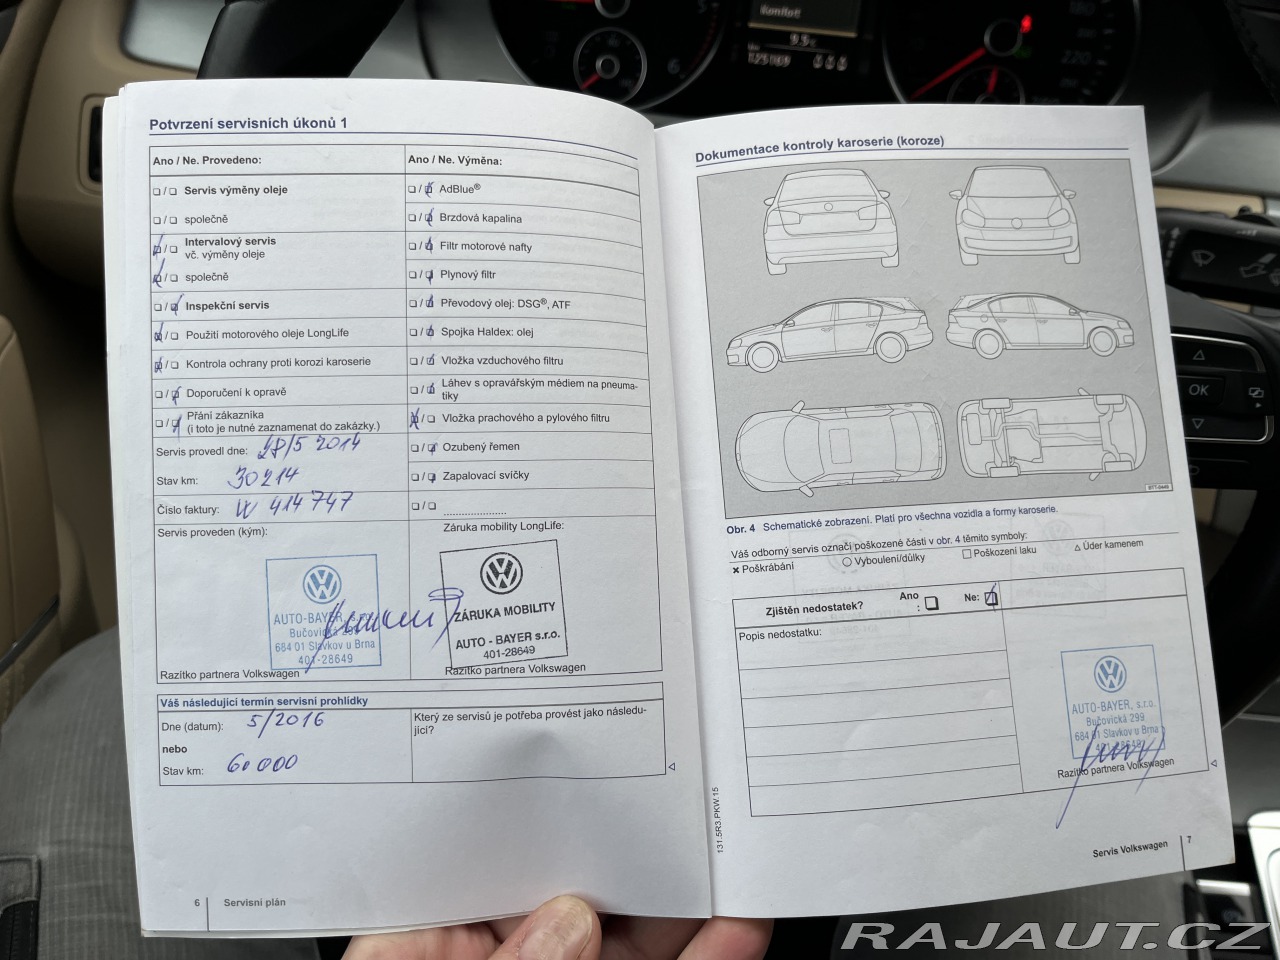 Komfort
9.5
125109
5
6
180
220
Potvrzení servisních úkonů 1
Ano / Ne. Provedeno:
Ano / Ne. Výměna:
Servis výměny oleje
společně
Intervalový servis
vč. výměny oleje
společně
Inspekční servis
Použití motorového oleje LongLife
Kontrola ochrany proti korozi karoserie
Doporučení k opravě
Přání zákazníka
(i toto je nutné zaznamenat do zakázky.)
Servis provedl dne: 28/5 2014
Stav km: 30214
Číslo faktury: W 414747
Servis proveden (kým):
AUTO-BAYER, s.r.o.
Bučovická 299
684 01 Slavkov u Brna
401-28649
Razítko partnera Volkswagen
AdBlue®
Brzdová kapalina
Filtr motorové nafty
Plynový filtr
Převodový olej: DSG®, ATF
Spojka Haldex: olej
Vložka vzduchového filtru
Láhev s opravářským médiem na pneuma-
tiky
Vložka prachového a pylového filtru
Ozubený řemen
Zapalovací svíčky
Záruka mobility LongLife:
ZÁRUKA MOBILITY
AUTO - BAYER s.r.o.
401-28649
Razítko partnera Volkswagen
Váš následující termín servisní prohlídky
Dne (datum): 5/2016
nebo
Stav km: 60 000
Který ze servisů je potřeba provést jako následu-
jící?
6 Servisní plán
Dokumentace kontroly karoserie (koroze)
B7T-0449
Obr. 4 Schematické zobrazení. Platí pro všechna vozidla a formy karoserie.
Váš odborný servis označí poškozené části v obr. 4 těmito symboly:
× Poškrábání ○ Vyboulení/důlky □ Poškození laku △ Úder kamenem
Zjištěn nedostatek? Ano
: Ne:
Popis nedostatku:
AUTO-BAYER, s.r.o.
Bučovická 299
684 01 Slavkov u Brna
401-28649
Razítko partnera Volkswagen
131.5R3.PKW.15
Servis Volkswagen 7
OK
RAJAUT.CZ